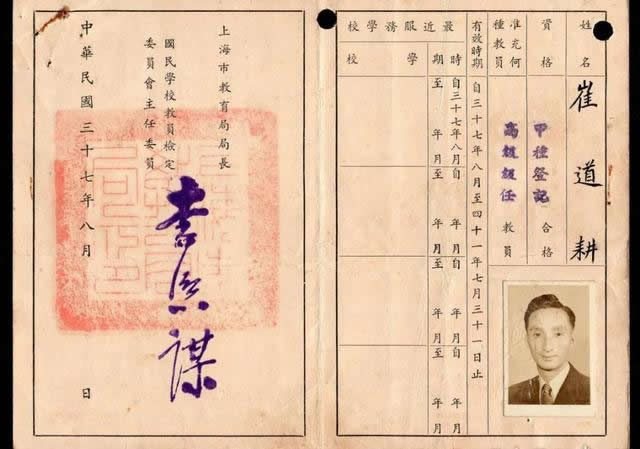 姓名 崔道耕
資格 甲種登記 合格
准充何種教員 高級級任 教員
有效時期 自三十七年八月至四十一年七月三十一日止
最近服務學校
時期
學校
自三十七年八月
至 年 月
自 年 月
至 年 月
自 年 月
至 年 月
自 年 月
至 年 月
上海市教育局局長
國民學校教員檢定
委員會主任委員
李熙謀
中華民國三十七年八月 日